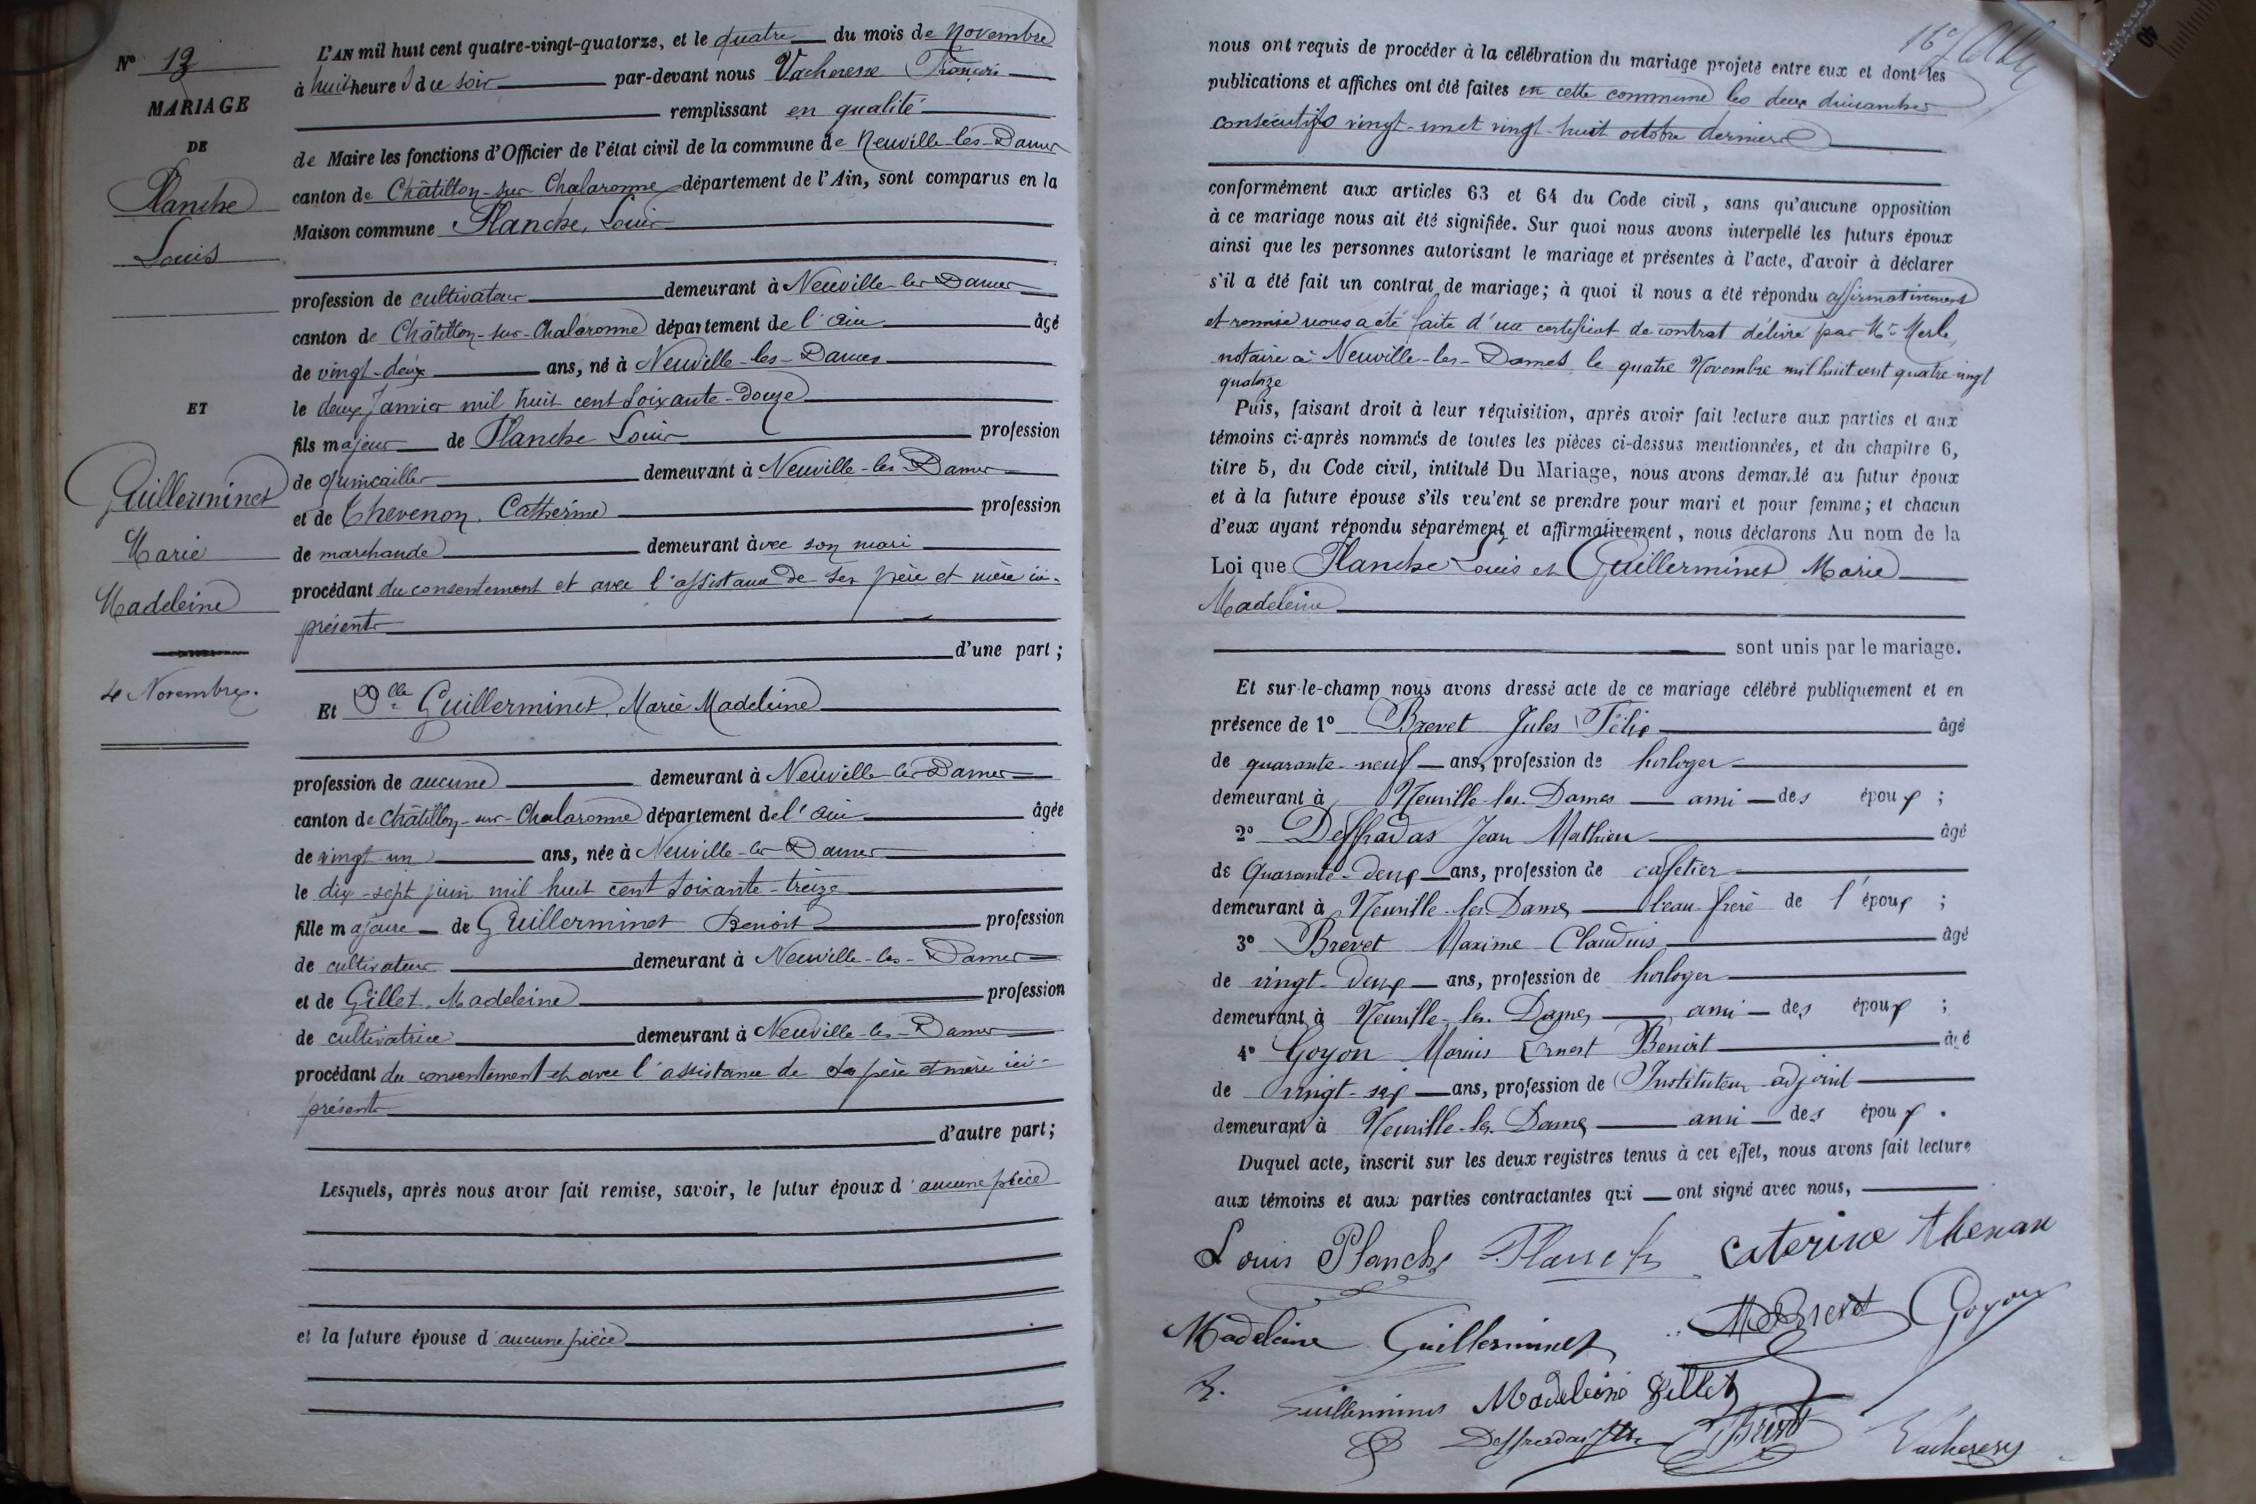 N° 13
MARIAGE
DE
Planche
Louis
ET
Guillerminet
Marie
Madeleine
4 Novembre.
L'AN mil huit cent quatre-vingt-quatorze, et le quatre du mois de Novembre
à huit heures du soir par-devant nous Vacheresse François
remplissant en qualité
de Maire les fonctions d'Officier de l'état civil de la commune de Neuville-les-Dames
canton de Châtillon-sur-Chalaronne département de l'Ain, sont comparus en la
Maison commune Planche, Louis
profession de cultivateur demeurant à Neuville-les-Dames
canton de Châtillon-sur-Chalaronne département de l'Ain âgé
de vingt-deux ans, né à Neuville-les-Dames
le deux Janvier mil huit cent soixante-douze
fils majeur de Planche Louis profession
de quincailler demeurant à Neuville-les-Dames
et de Thevenon, Catherine profession
de marchande demeurant avec son mari
procédant du consentement et avec l'assistance de ses père et mère ici-
présents
d'une part;
Et Dlle Guillerminet, Marie Madeleine
profession de aucune demeurant à Neuville-les-Dames
canton de Châtillon-sur-Chalaronne département de l'Ain âgée
de vingt-un ans, née à Neuville-les-Dames
le dix-sept juin mil huit cent soixante-treize
fille majeure de Guillerminet Benoit profession
de cultivateur demeurant à Neuville-les-Dames
et de Gillet, Madeleine profession
de cultivatrice demeurant à Neuville-les-Dames
procédant du consentement et avec l'assistance de ses père et mère ici-
présents
d'autre part;
Lesquels, après nous avoir fait remise, savoir, le futur époux d'aucune pièce
et la future épouse d'aucune pièce
nous ont requis de procéder à la célébration du mariage projeté entre eux et dont les
publications et affiches ont été faites en cette commune les deux dimanches
consécutifs vingt-un et vingt-huit octobre derniers
conformément aux articles 63 et 64 du Code civil, sans qu'aucune opposition
à ce mariage nous ait été signifiée. Sur quoi nous avons interpellé les futurs époux
ainsi que les personnes autorisant le mariage et présentes à l'acte, d'avoir à déclarer
s'il a été fait un contrat de mariage; à quoi il nous a été répondu affirmativement
et remise nous a été faite d'un certificat de contrat délivré par Me Merle,
notaire à Neuville-les-Dames le quatre Novembre mil huit cent quatre-vingt
quatorze
Puis, faisant droit à leur réquisition, après avoir fait lecture aux parties et aux
témoins ci-après nommés de toutes les pièces ci-dessus mentionnées, et du chapitre 6,
titre 5, du Code civil, intitulé Du Mariage, nous avons demandé au futur époux
et à la future épouse s'ils veulent se prendre pour mari et pour femme; et chacun
d'eux ayant répondu séparément et affirmativement, nous déclarons Au nom de la
Loi que Planche Louis et Guillerminet Marie
Madeleine
sont unis par le mariage.
Et sur-le-champ nous avons dressé acte de ce mariage célébré publiquement et en
présence de 1° Brevet Jules Félix âgé
de quarante-neuf ans, profession de horloger
demeurant à Neuville-les-Dames ami des époux;
2° Deffradas Jean Mathieu âgé
de Quarante-deux ans, profession de cafetier
demeurant à Neuville-les-Dames beau-frère de l'époux;
3° Brevet Maxime Claudius âgé
de vingt-deux ans, profession de horloger
demeurant à Neuville-les-Dames ami des époux;
4° Goyon Marius Ernest Benoit âgé
de vingt-six ans, profession de Instituteur-adjoint
demeurant à Neuville-les-Dames ami des époux.
Duquel acte, inscrit sur les deux registres tenus à cet effet, nous avons fait lecture
aux témoins et aux parties contractantes qui ont signé avec nous,
Louis Planche Planche Caterine thenan
Madeleine Guillerminet M Brevet Goyon
Guillerminet Madeleine Gillet
Deffradas Brevet Vacheresse